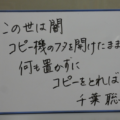 この世は闇
コピー機のフタを開けたまま
何も置かずに
コピーをとれば
千葉聡